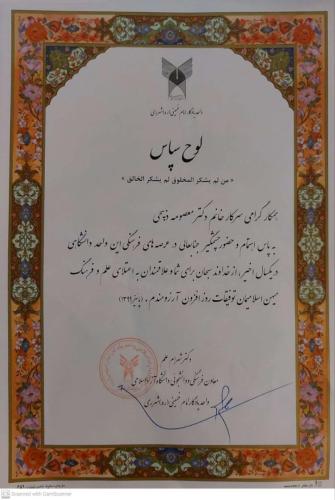 واحد یادگار امام خمینی (ره) شهرری
لوح سپاس
« من لم یشکر المخلوق لم یشکر الخالق »
همکار گرامی سرکار خانم دکتر معصومه ذبیحی
به پاس اهتمام و حضور چشمگیر جنابعالی در عرصه های فرهنگی این واحد دانشگاهی
در یکسال اخیر، از خداوند سبحان برای شما و علاقمندان به اعتلای علم و فرهنگ
میهن اسلامیمان توفیقات روز افزون آرزومندم. (پاییز ۱۳۹۹)
دکتر شهرام علم
معاون فرهنگی و دانشجویی دانشگاه آزاد اسلامی
واحد یادگار امام خمینی (ره) شهرری
Scanned with CamScanner